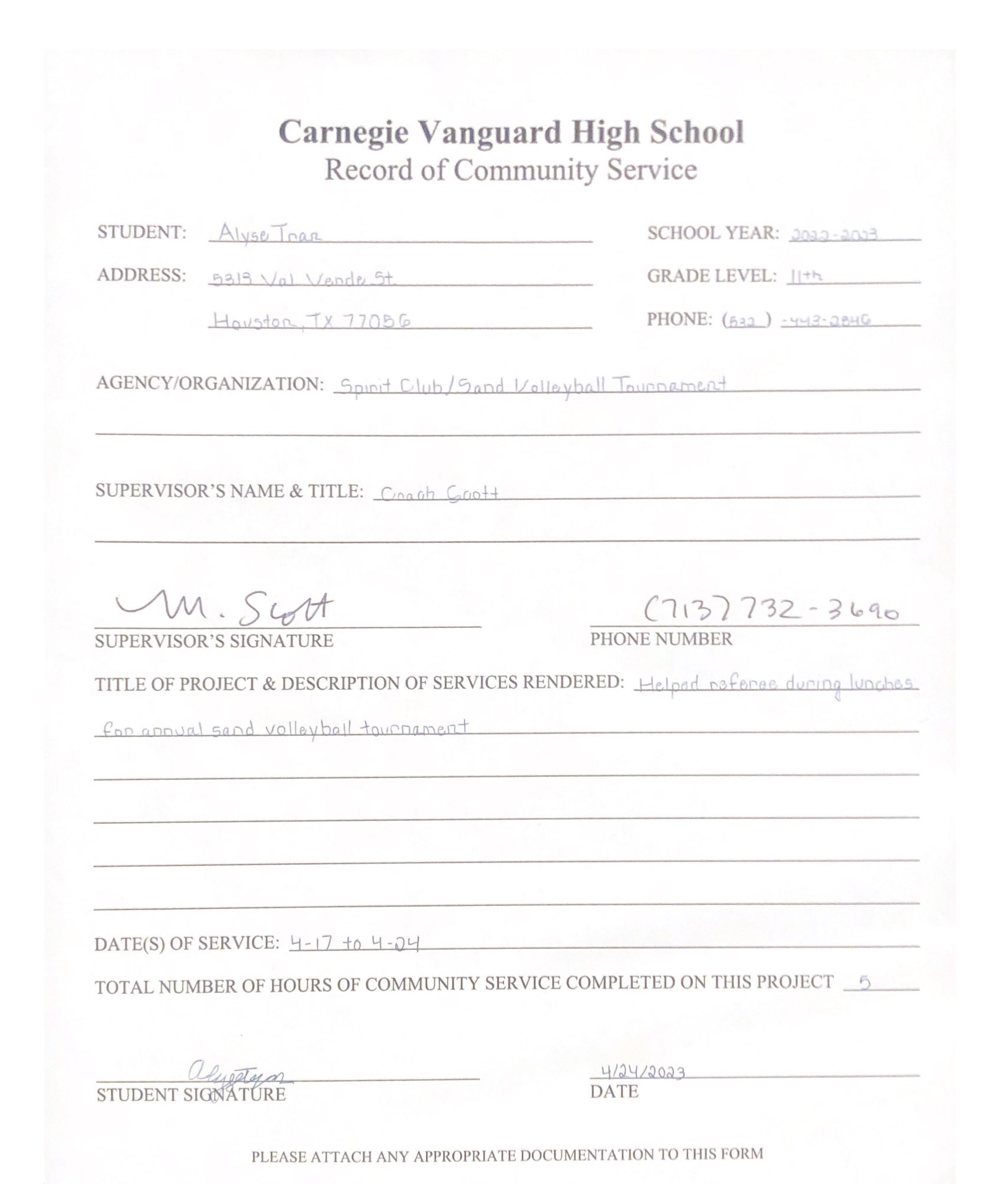 Carnegie Vanguard High School
Record of Community Service
STUDENT: Alyse Tran SCHOOL YEAR: 2022-2023
ADDRESS: 5313 Val Verde St. GRADE LEVEL: 11th
Houston, TX 77056 PHONE: (832) -443-2846
AGENCY/ORGANIZATION: Spirit Club/Sand Volleyball Tournament
SUPERVISOR'S NAME & TITLE: Coach Scott
M. Scott (713) 732-3690
SUPERVISOR'S SIGNATURE PHONE NUMBER
TITLE OF PROJECT & DESCRIPTION OF SERVICES RENDERED: Helped referee during lunches
for annual sand volleyball tournament
DATE(S) OF SERVICE: 4-17 to 4-24
TOTAL NUMBER OF HOURS OF COMMUNITY SERVICE COMPLETED ON THIS PROJECT 5
4/24/2023
STUDENT SIGNATURE DATE
PLEASE ATTACH ANY APPROPRIATE DOCUMENTATION TO THIS FORM